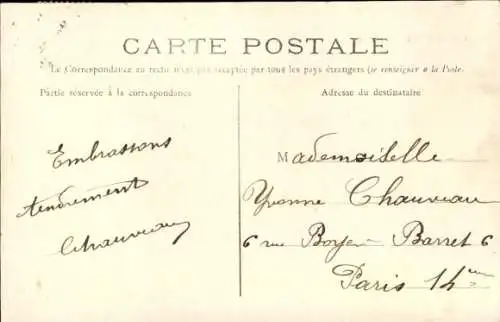 CARTE POSTALE
La Correspondance au recto n'est pas acceptée par tous les pays étrangers (se renseigner a la Poste.
Partie réservée à la correspondance
Adresse du destinataire
Embrassons
tendrement
Chauveau
Mademoiselle
Yvonne Chauveau
6 rue Boyer-Barret 6
Paris 14ème